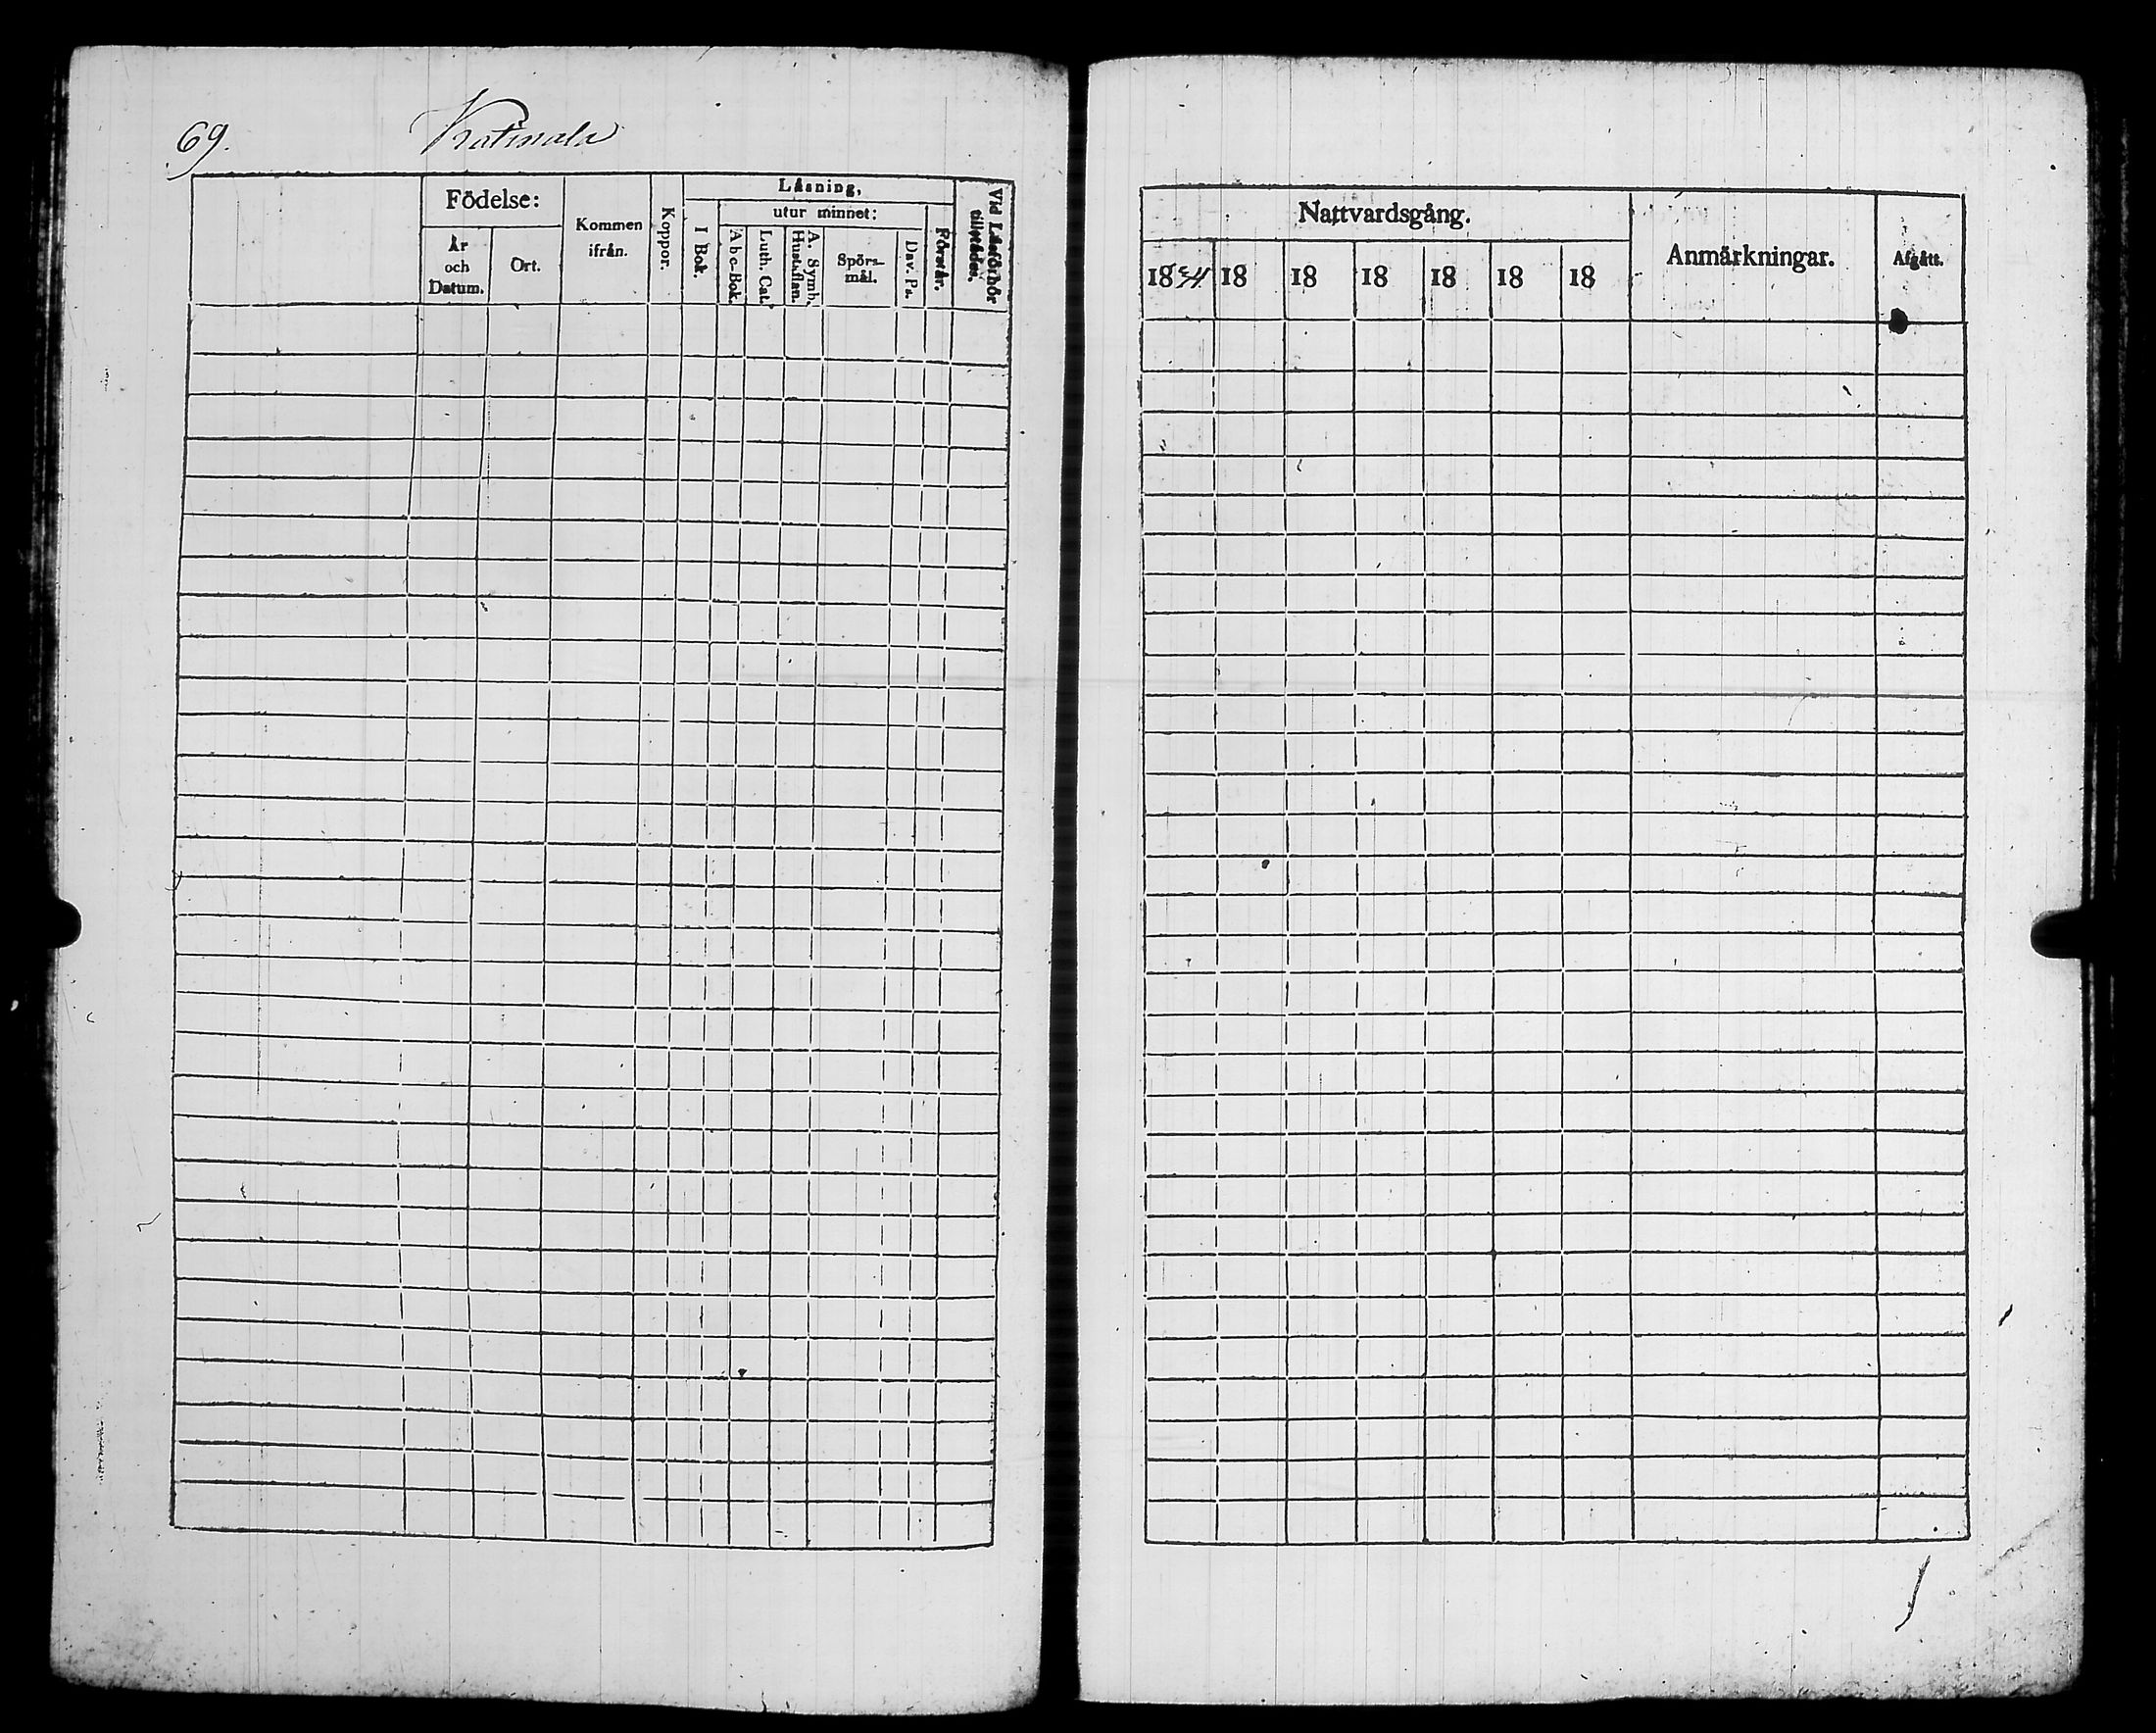 69. Katinala
Födelse:
År och Datum.
Ort.
Kommen ifrån.
Koppor.
Läsning,
I Bok.
utur minnet:
A b c-Bok.
Luth. Cat.
A. Symb. Hustaflan.
Spörs-
mål.
Dav. Ps.
Förstår.
Vid Läsförhör tillstädes.
Nattvardsgång.
1834 18 18 18 18 18 18
Anmärkningar.
Afgått.